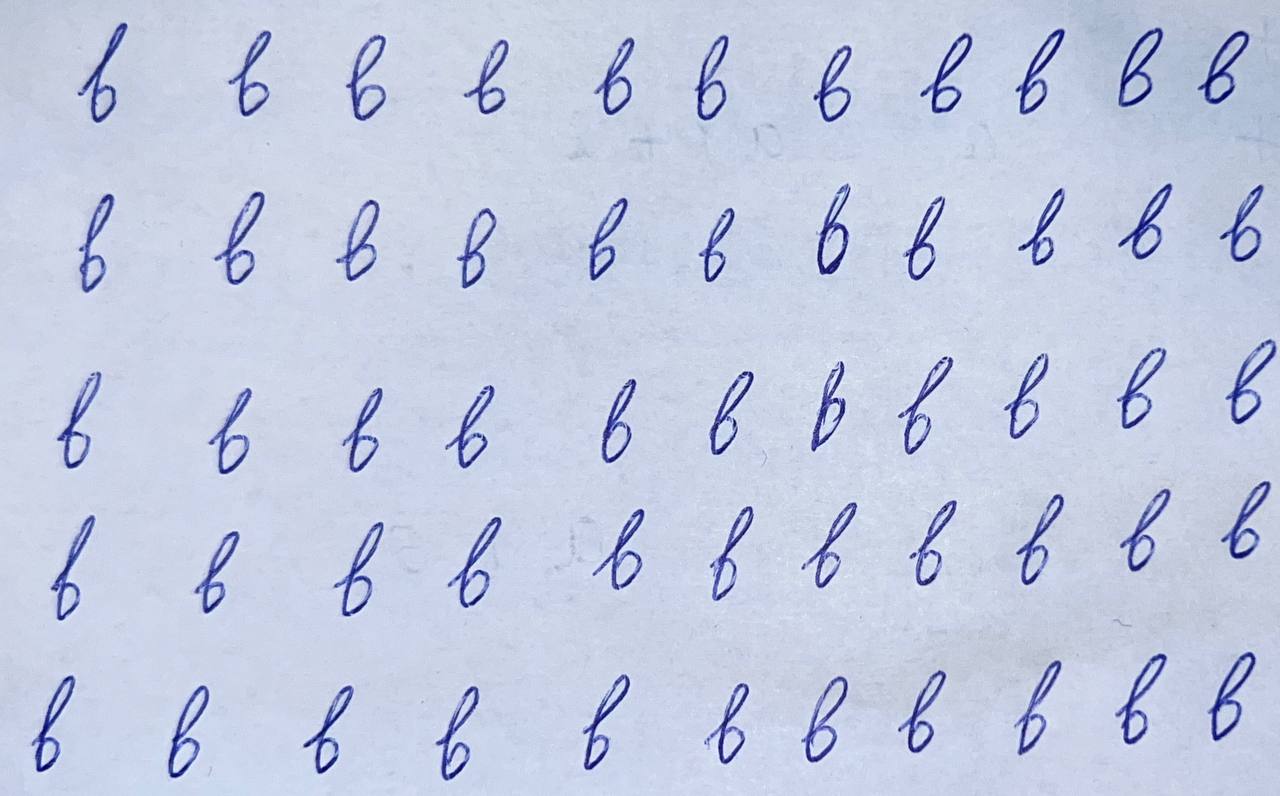 в в в в в в в в в в в
в в в в в в в в в в в
в в в в в в в в в в в
в в в в в в в в в в в
в в в в в в в в в в в